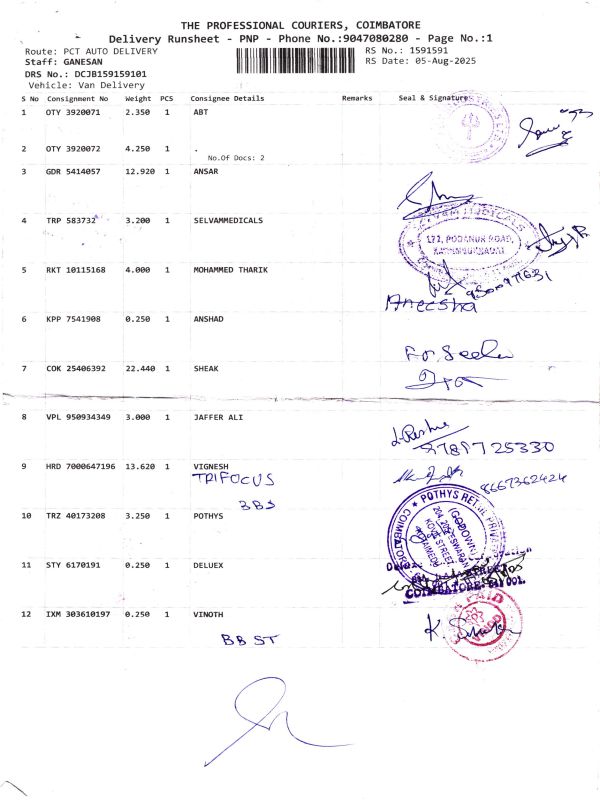 THE PROFESSIONAL COURIERS, COIMBATORE
Delivery Runsheet - PNP - Phone No.:9047080280 - Page No.:1
Route: PCT AUTO DELIVERY RS No.: 1591591
Staff: GANESAN RS Date: 05-Aug-2025
DRS No.: DCJB159159101
Vehicle: Van Delivery
S No Consignment No Weight PCS Consignee Details Remarks Seal & Signature
1 OTY 3920071 2.350 1 ABT
2 OTY 3920072 4.250 1 .
No.Of Docs: 2
3 GDR 5414057 12.920 1 ANSAR
4 TRP 583732 3.200 1 SELVAMMEDICALS
172, PODANUR ROAD,
5 RKT 10115168 4.000 1 MOHAMMED THARIK
Aneesha
6 KPP 7541908 0.250 1 ANSHAD
For
7 COK 25406392 22.440 1 SHEAK
8 VPL 950934349 3.000 1 JAFFER ALI
9789725330
9 HRD 7000647196 13.620 1 VIGNESH
TRIFOCUS
8667362424
BBS
10 TRZ 40173208 3.250 1 POTHYS
POTHYS RETAIL PRIVATE
COIMBATORE
(GODOWN)
11 STY 6170191 0.250 1 DELUEX
COIMBATORE-641 001.
12 IXM 303610197 0.250 1 VINOTH
PAID
BB ST